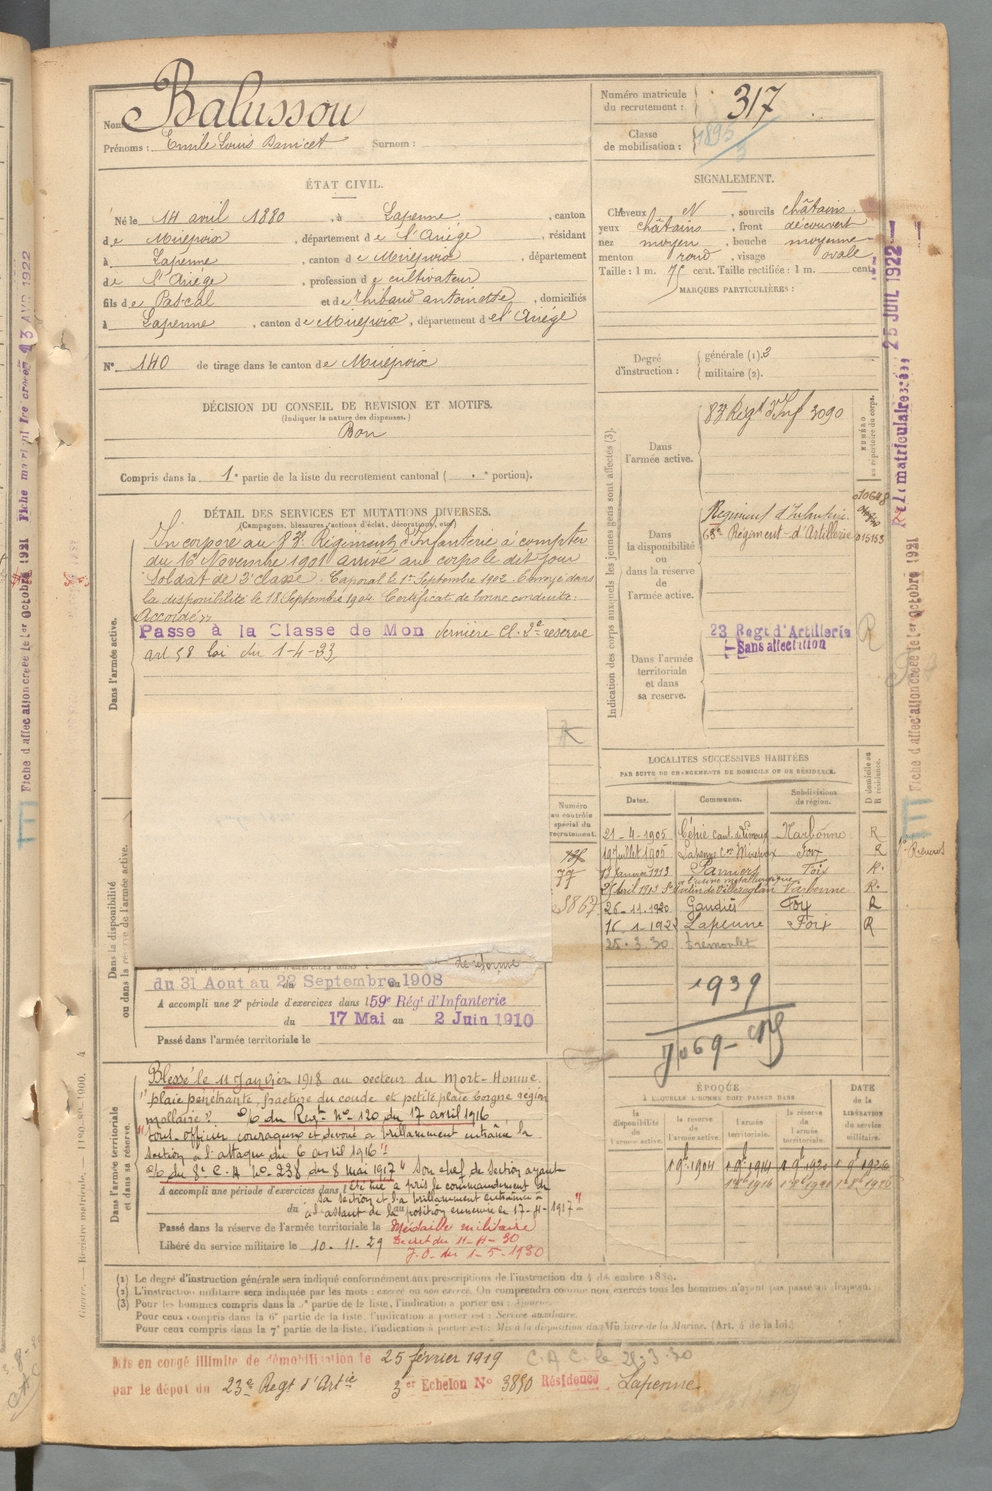 Nom : Balussou
Prénoms : Emile Louis Surnom :
Numéro matricule du recrutement : 317
Classe de mobilisation :
ÉTAT CIVIL.
Né le 14 avril 1880, à Lapenne, canton
de Mirepoix, département de l'Ariége, résidant
à Lapenne, canton de Mirepoix, département
de l'Ariége, profession de cultivateur
fils de Pascal et de Thibaud antoinette, domiciliés
à Lapenne, canton de Mirepoix, département de l'Ariége
N° 140 de tirage dans le canton de Mirepoix
SIGNALEMENT.
Cheveux N, sourcils châtains
yeux châtains, front découvert
nez moyen, bouche moyenne
menton rond, visage ovale
Taille : 1 m. 75 cent. Taille rectifiée : 1 m. cent.
MARQUES PARTICULIÈRES :
Degré d'instruction : générale (1). 2
militaire (2).
DÉCISION DU CONSEIL DE REVISION ET MOTIFS.
(Indiquer la nature des dispenses.)
Bon
Compris dans la 1e partie de la liste du recrutement cantonal ( e portion).
DÉTAIL DES SERVICES ET MUTATIONS DIVERSES.
(Campagnes, blessures, actions d'éclat, décorations, etc.)
Dans l'armée active.
Incorporé au 83e Régiment d'Infanterie à compter
du 16 Novembre 1901 arrivé au corps le dit jour
Soldat de 2e classe. Caporal le 1er Septembre 1902. Envoyé dans
la disponibilité le 18 Septembre 1904. Certificat de bonne conduite :
Accordé.
Passe à la Classe de Mon dernière Cl. 2e réserve
art 58 loi du 1-4-33
Indication des corps auxquels les jeunes gens sont affectés (3).
Dans l'armée active.
83e Régt d'Inf 3090
NUMÉRO au répertoire du corps.
Dans la disponibilité ou dans la réserve de l'armée active.
Régiment d'Infanterie
Régiment d'Artillerie 015153
Dans l'armée territoriale et dans sa réserve.
23 Regt d'Artillerie
Sans affectation
R
LOCALITÉS SUCCESSIVES HABITÉES
PAR SUITE DE CHANGEMENTS DE DOMICILE OU DE RÉSIDENCE.
Dates. Communes. Subdivisions de région. D domicile ou R résidence.
21-4-1905 Cépie cant. de Limoux Narbonne R
Juillet 1905 Lapenne Con Mirepoix Foix R
Janvier 1913 Pamiers Foix R.
Avril 1913 Narbonne R.
26-11-1920 Gaudiès Foix R
16-1-1922 Lapenne Foix R
25.3.30 Tremoulet
1939
Numéro au contrôle spécial du recrutement.
77
3867
Dans la disponibilité ou dans la réserve de l'armée active.
de réforme
du 31 Aout au 22 Septembre 1908
A accompli une 2e période d'exercices dans l 59e Régt d'Infanterie
du 17 Mai au 2 Juin 1910
Passé dans l'armée territoriale le
Dans l'armée territoriale et dans sa réserve.
Blessé le 11 Janvier 1918 au secteur du Mort-Homme.
plaie pénétrante, fracture du coude et petite plaie borgne région
mollaire. O/ du Regt No 120 du 17 avril 1916
"sous-officier courageux et dévoué a brillamment entraîné la
section à l'attaque du 6 avril 1916"
O/ du 8e C.A No 238 du 8 mai 1917 "Son chef de section ayant
été tué a pris le commandement de
A accompli une période d'exercices dans l
sa section et l'a brillamment entraînée à
du l'assaut de la position ennemie le 17-4-1917"
Passé dans la réserve de l'armée territoriale le Médaille militaire
Libéré du service militaire le 10-11-29 Decret du 11-4-30
J.O. du 1-5-1930
ÉPOQUE
À LAQUELLE L'HOMME DOIT PASSER DANS
la disponibilité de l'armée active. la réserve de l'armée active. l'armée territoriale. la réserve de l'armée territoriale.
DATE de la LIBÉRATION du service militaire.
(1) Le degré d'instruction générale sera indiqué conformément aux prescriptions de l'instruction du 4 décembre 1889.
(2) L'instruction militaire sera indiquée par les mots : exercé ou non exercé. On comprendra comme non exercés tous les hommes n'ayant pas passé au drapeau.
(3) Pour les hommes compris dans la 5e partie de la liste, l'indication à porter est : Ajourné.
Pour ceux compris dans la 6e partie de la liste, l'indication à porter est : Service auxiliaire.
Pour ceux compris dans la 7e partie de la liste, l'indication à porter est : Mis à la disposition du Ministre de la Marine. (Art. 4 de la loi.)
Mis en congé illimité de démobilisation le 25 février 1919 C.A.C. le 25.3.30
par le dépot du 23e Regt d'Artie 3er Echelon No 3850 Résidence Lapenne
Guerre. — Registre matricule.
Fiche d'affectation créée le 1er Octobre 1921
25 JUIL 1922
Fiche d'affectation créée le 1er Octobre 1921